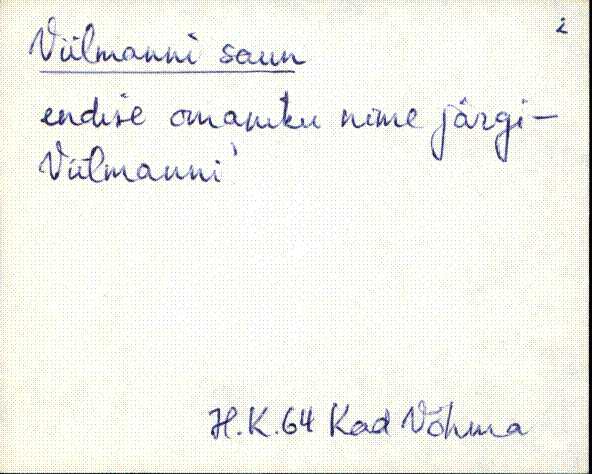 2
Viilmanni saun
endise omaniku nime järgi –
Viilmanni
H.K.64 Kad Võhma